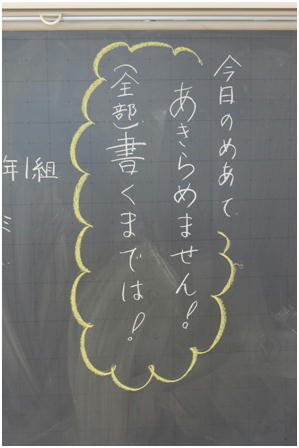 今日のめあて
あきらめません!
(全部)書くまでは!
年1組